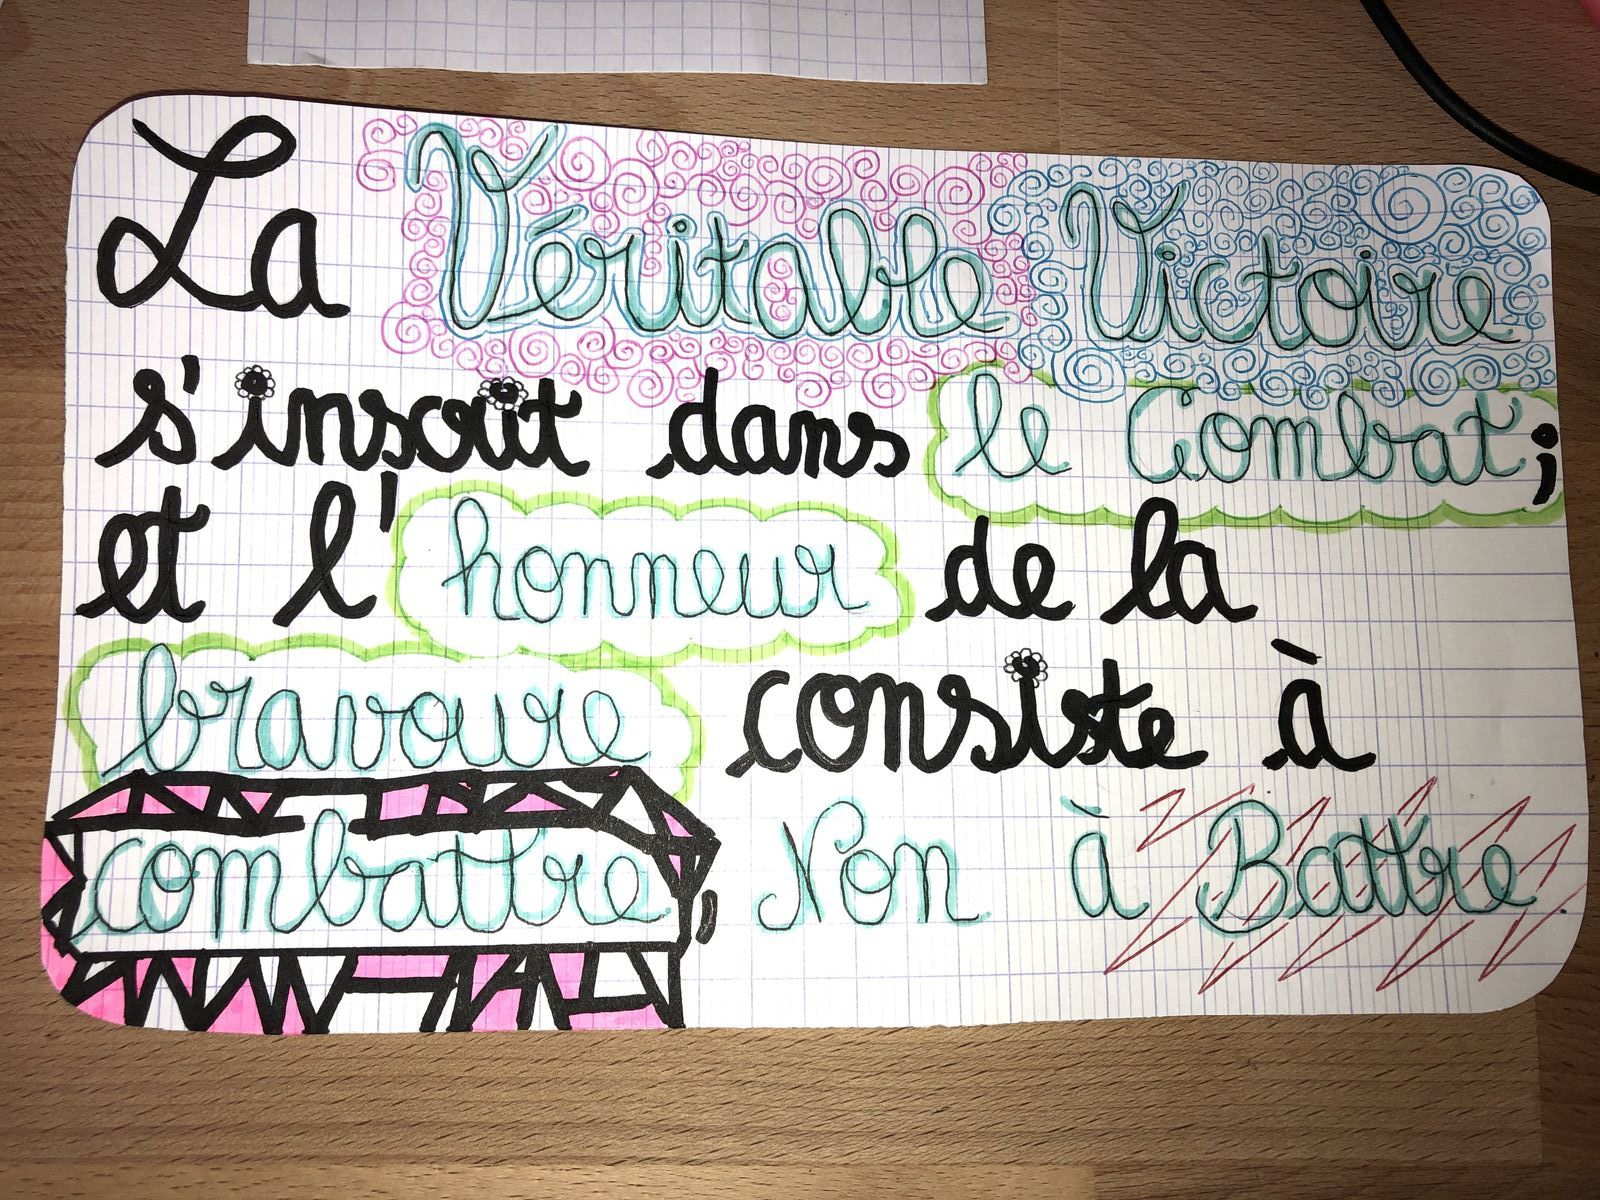 La Véritable Victoire
s'inscrit dans le Combat ;
et l'honneur de la
bravoure consiste à
combattre, Non à Battre